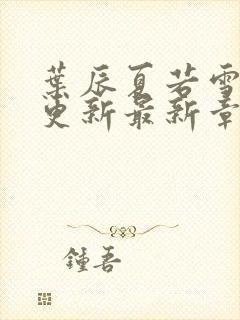 葉辰夏若雪
更新最新章
鍾吾